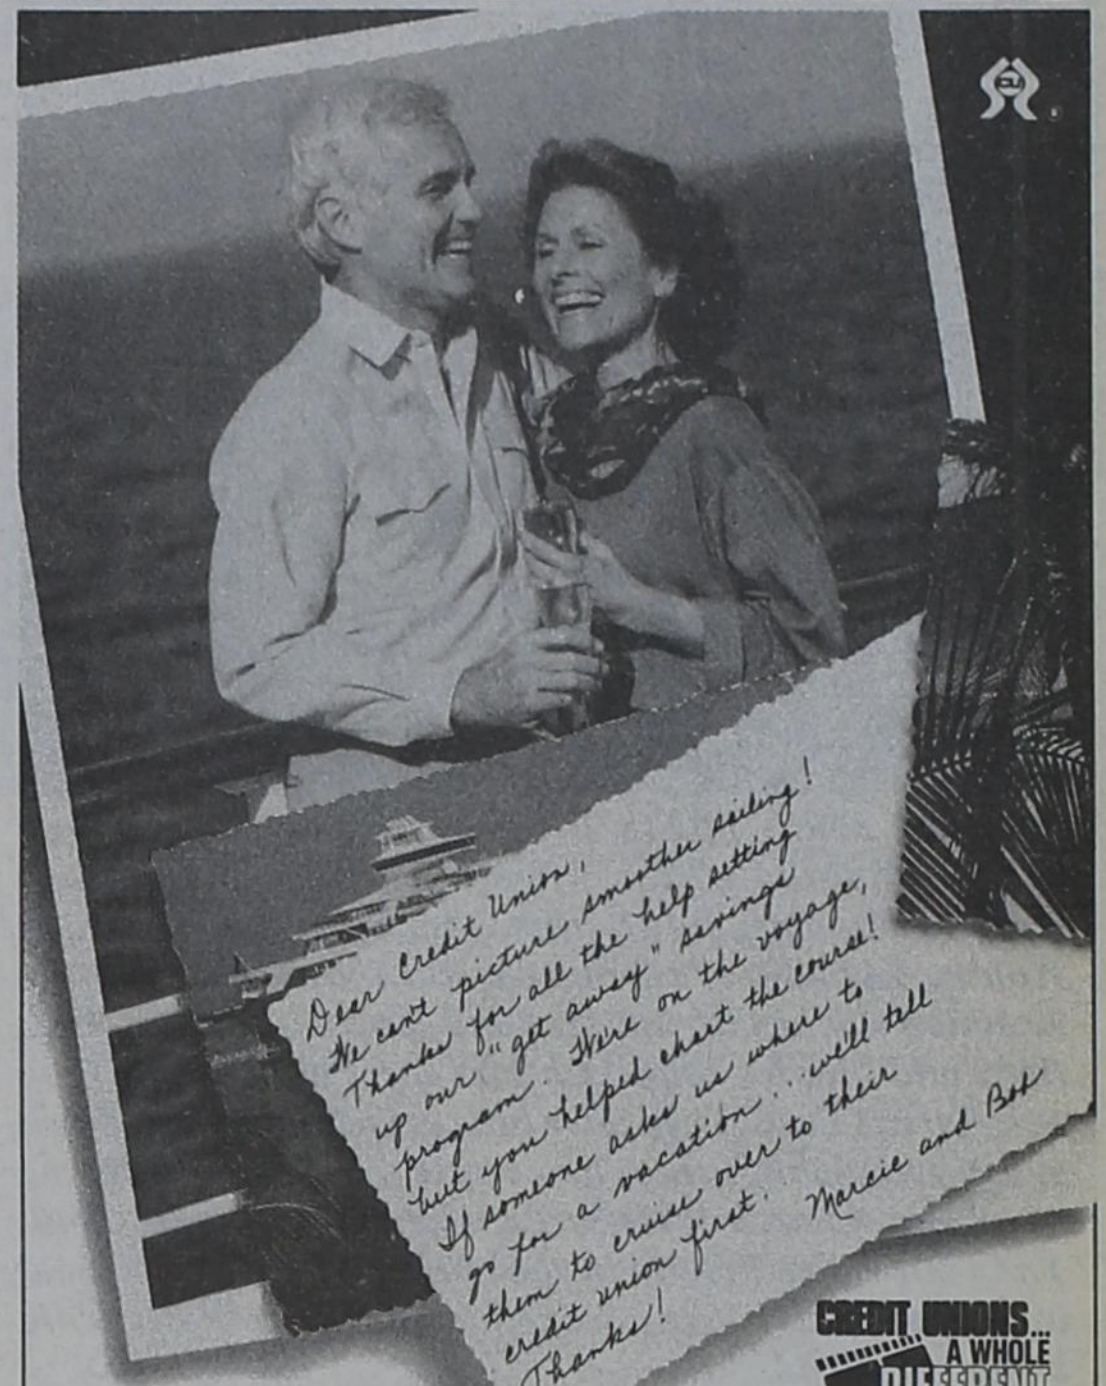 CU
Dear Credit Union,
We can't picture smoother sailing!
Thanks for all the help setting
up our "get away" savings
program. We're on the voyage,
but you helped chart the course!
If someone asks us where to
go for a vacation... we'll tell
them to cruise over to their
credit union first.
Thanks!
Marcie and Bob
CREDIT UNIONS...
A WHOLE
DIFFERENT